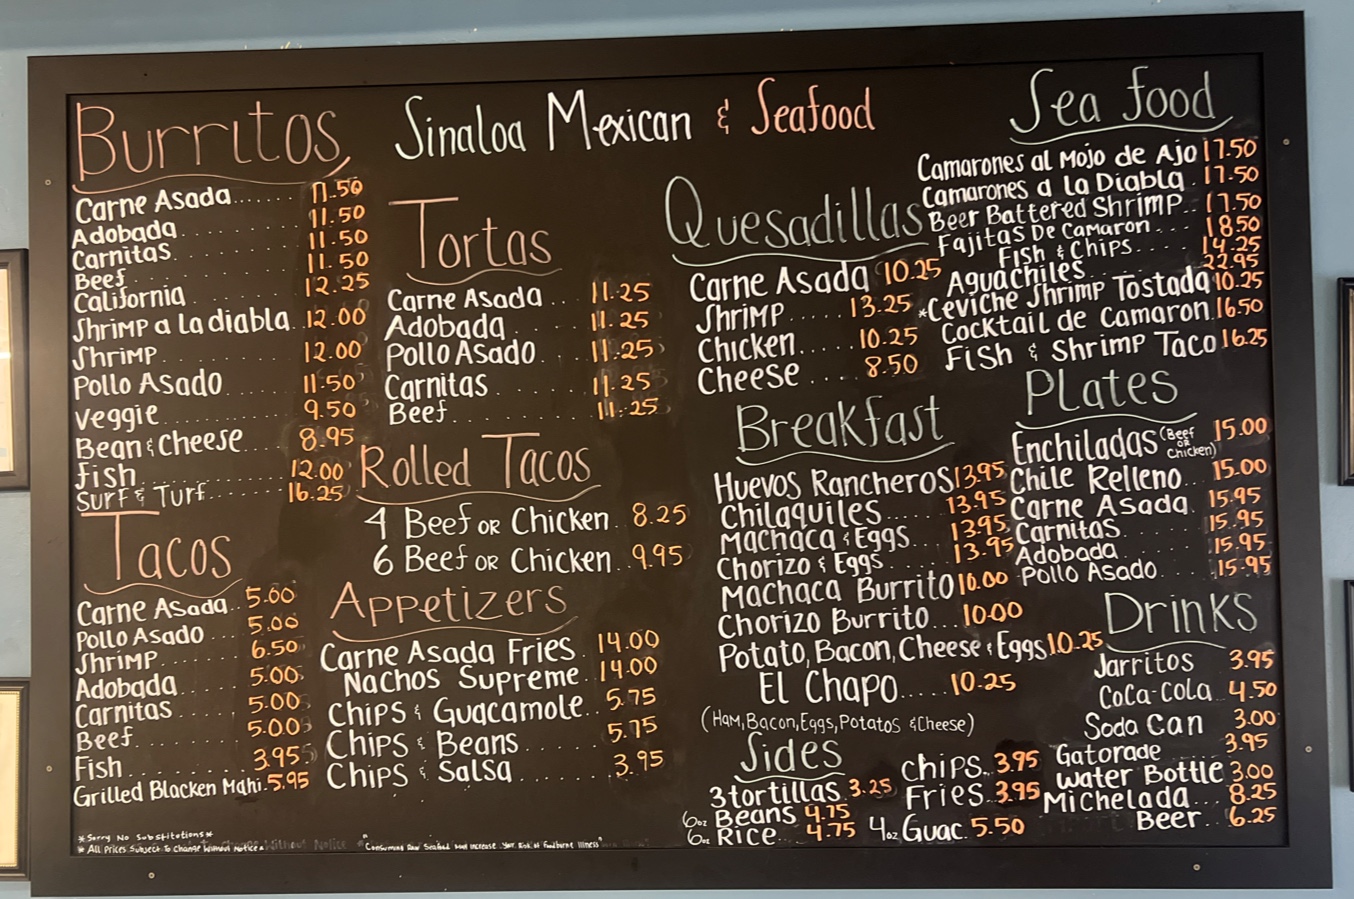 Sinaloa Mexican & Seafood
Burritos
Carne Asada....... 11.50
Adobada 11.50
Carnitas 11.50
Beef 11.50
California 12.25
Shrimp a la diabla.. 12.00
Shrimp 12.00
Pollo Asado 11.50
Veggie 9.50
Bean & Cheese.... 8.95
Fish 12.00
Surf & Turf 16.25
Tacos
Carne Asada.. 5.00
Pollo Asado... 5.00
Shrimp 6.50
Adobada 5.00
Carnitas 5.00
Beef 5.00
Fish 3.95
Grilled Blacken Mahi. 5.95
*Sorry No Substitutions*
*All Prices Subject To Change Without Notice*
Tortas
Carne Asada... 11.25
Adobada 11.25
Pollo Asado 11.25
Carnitas 11.25
Beef 11.25
Rolled Tacos
4 Beef or Chicken. 8.25
6 Beef or Chicken.. 9.95
Appetizers
Carne Asada Fries. 14.00
Nachos Supreme.. 14.00
Chips & Guacamole.. 5.75
Chips & Beans....... 5.75
Chips & Salsa 3.95
"Consuming Raw Seafood May Increase Your Risk of Foodborne Illness"
Quesadillas
Carne Asada 10.25
Shrimp..... 13.25
Chicken..... 10.25
Cheese .... 8.50
Breakfast
Huevos Rancheros 13.95
Chilaquiles 13.95
Machaca & Eggs... 13.95
Chorizo & Eggs 13.95
Machaca Burrito 10.00
Chorizo Burrito... 10.00
Potato, Bacon, Cheese & Eggs 10.25
El Chapo..... 10.25
(Ham, Bacon, Eggs, Potatos & Cheese)
Sides
3 tortillas 3.25
6oz Beans 4.75
6oz Rice... 4.75
Chips.. 3.95
Fries.. 3.95
4oz Guac. 5.50
Sea food
Camarones al Mojo de Ajo 17.50
Camarones a la Diabla. 17.50
Beer Battered Shrimp.. 17.50
Fajitas De Camaron ... 18.50
Fish & Chips..... 14.25
Aguachiles 22.95
*Ceviche Shrimp Tostada 10.25
Cocktail de Camaron. 16.50
Fish & Shrimp Taco 16.25
Plates
Enchiladas (Beef or Chicken) 15.00
Chile Relleno.. 15.00
Carne Asada. 15.95
Carnitas 15.95
Adobada 15.95
Pollo Asado 15.95
Drinks
Jarritos 3.95
Coca-Cola.. 4.50
Soda Can 3.00
Gatorade 3.95
Water Bottle 3.00
Michelada... 8.25
Beer.. 6.25